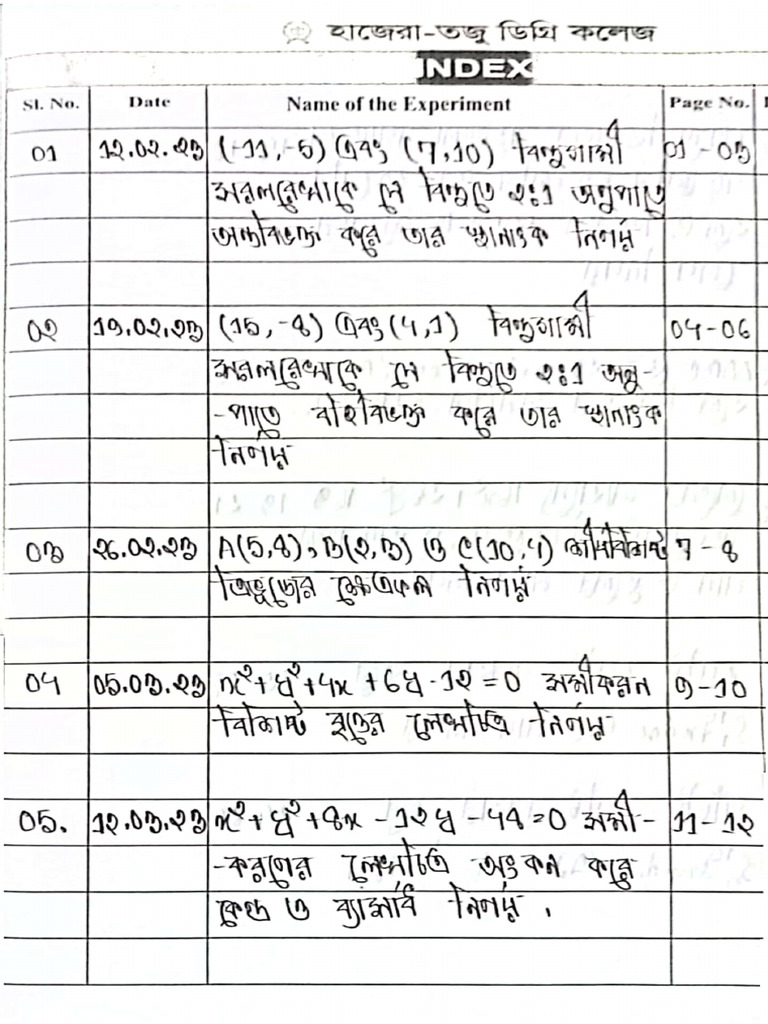 হাজেরা-তজু ডিগ্রি কলেজ
INDEX
Sl. No. Date Name of the Experiment Page No.
01 12.02.23 (-11,-5) এবং (7,10) বিন্দুগামী 01-03
সরলরেখাকে যে বিন্দুতে ২:1 অনুপাতে
অন্তর্বিভক্ত করে তার স্থানাংক নির্ণয়
02 19.02.23 (15,-8) এবং (4,1) বিন্দুগামী 04-06
সরলরেখাকে যে বিন্দুতে ২:1 অনু
-পাতে বহির্বিভক্ত করে তার স্থানাংক
নির্ণয়
03 26.02.23 A(5,8), B(2,3) ও C(10,4) শীর্ষবিশিষ্ট 7-8
ত্রিভুজের ক্ষেত্রফল নির্ণয়
04 05.03.23 x²+y²+4x+6y-12=0 সমীকরন 9-10
বিশিষ্ট বৃত্তের লেখচিত্র নির্ণয়
05. 12.03.23 x²+y²+8x-12y-48=0 সমী- 11-12
-করণের লেখচিত্র অংকন করে
কেন্দ্র ও ব্যাসার্ধ নির্ণয়.